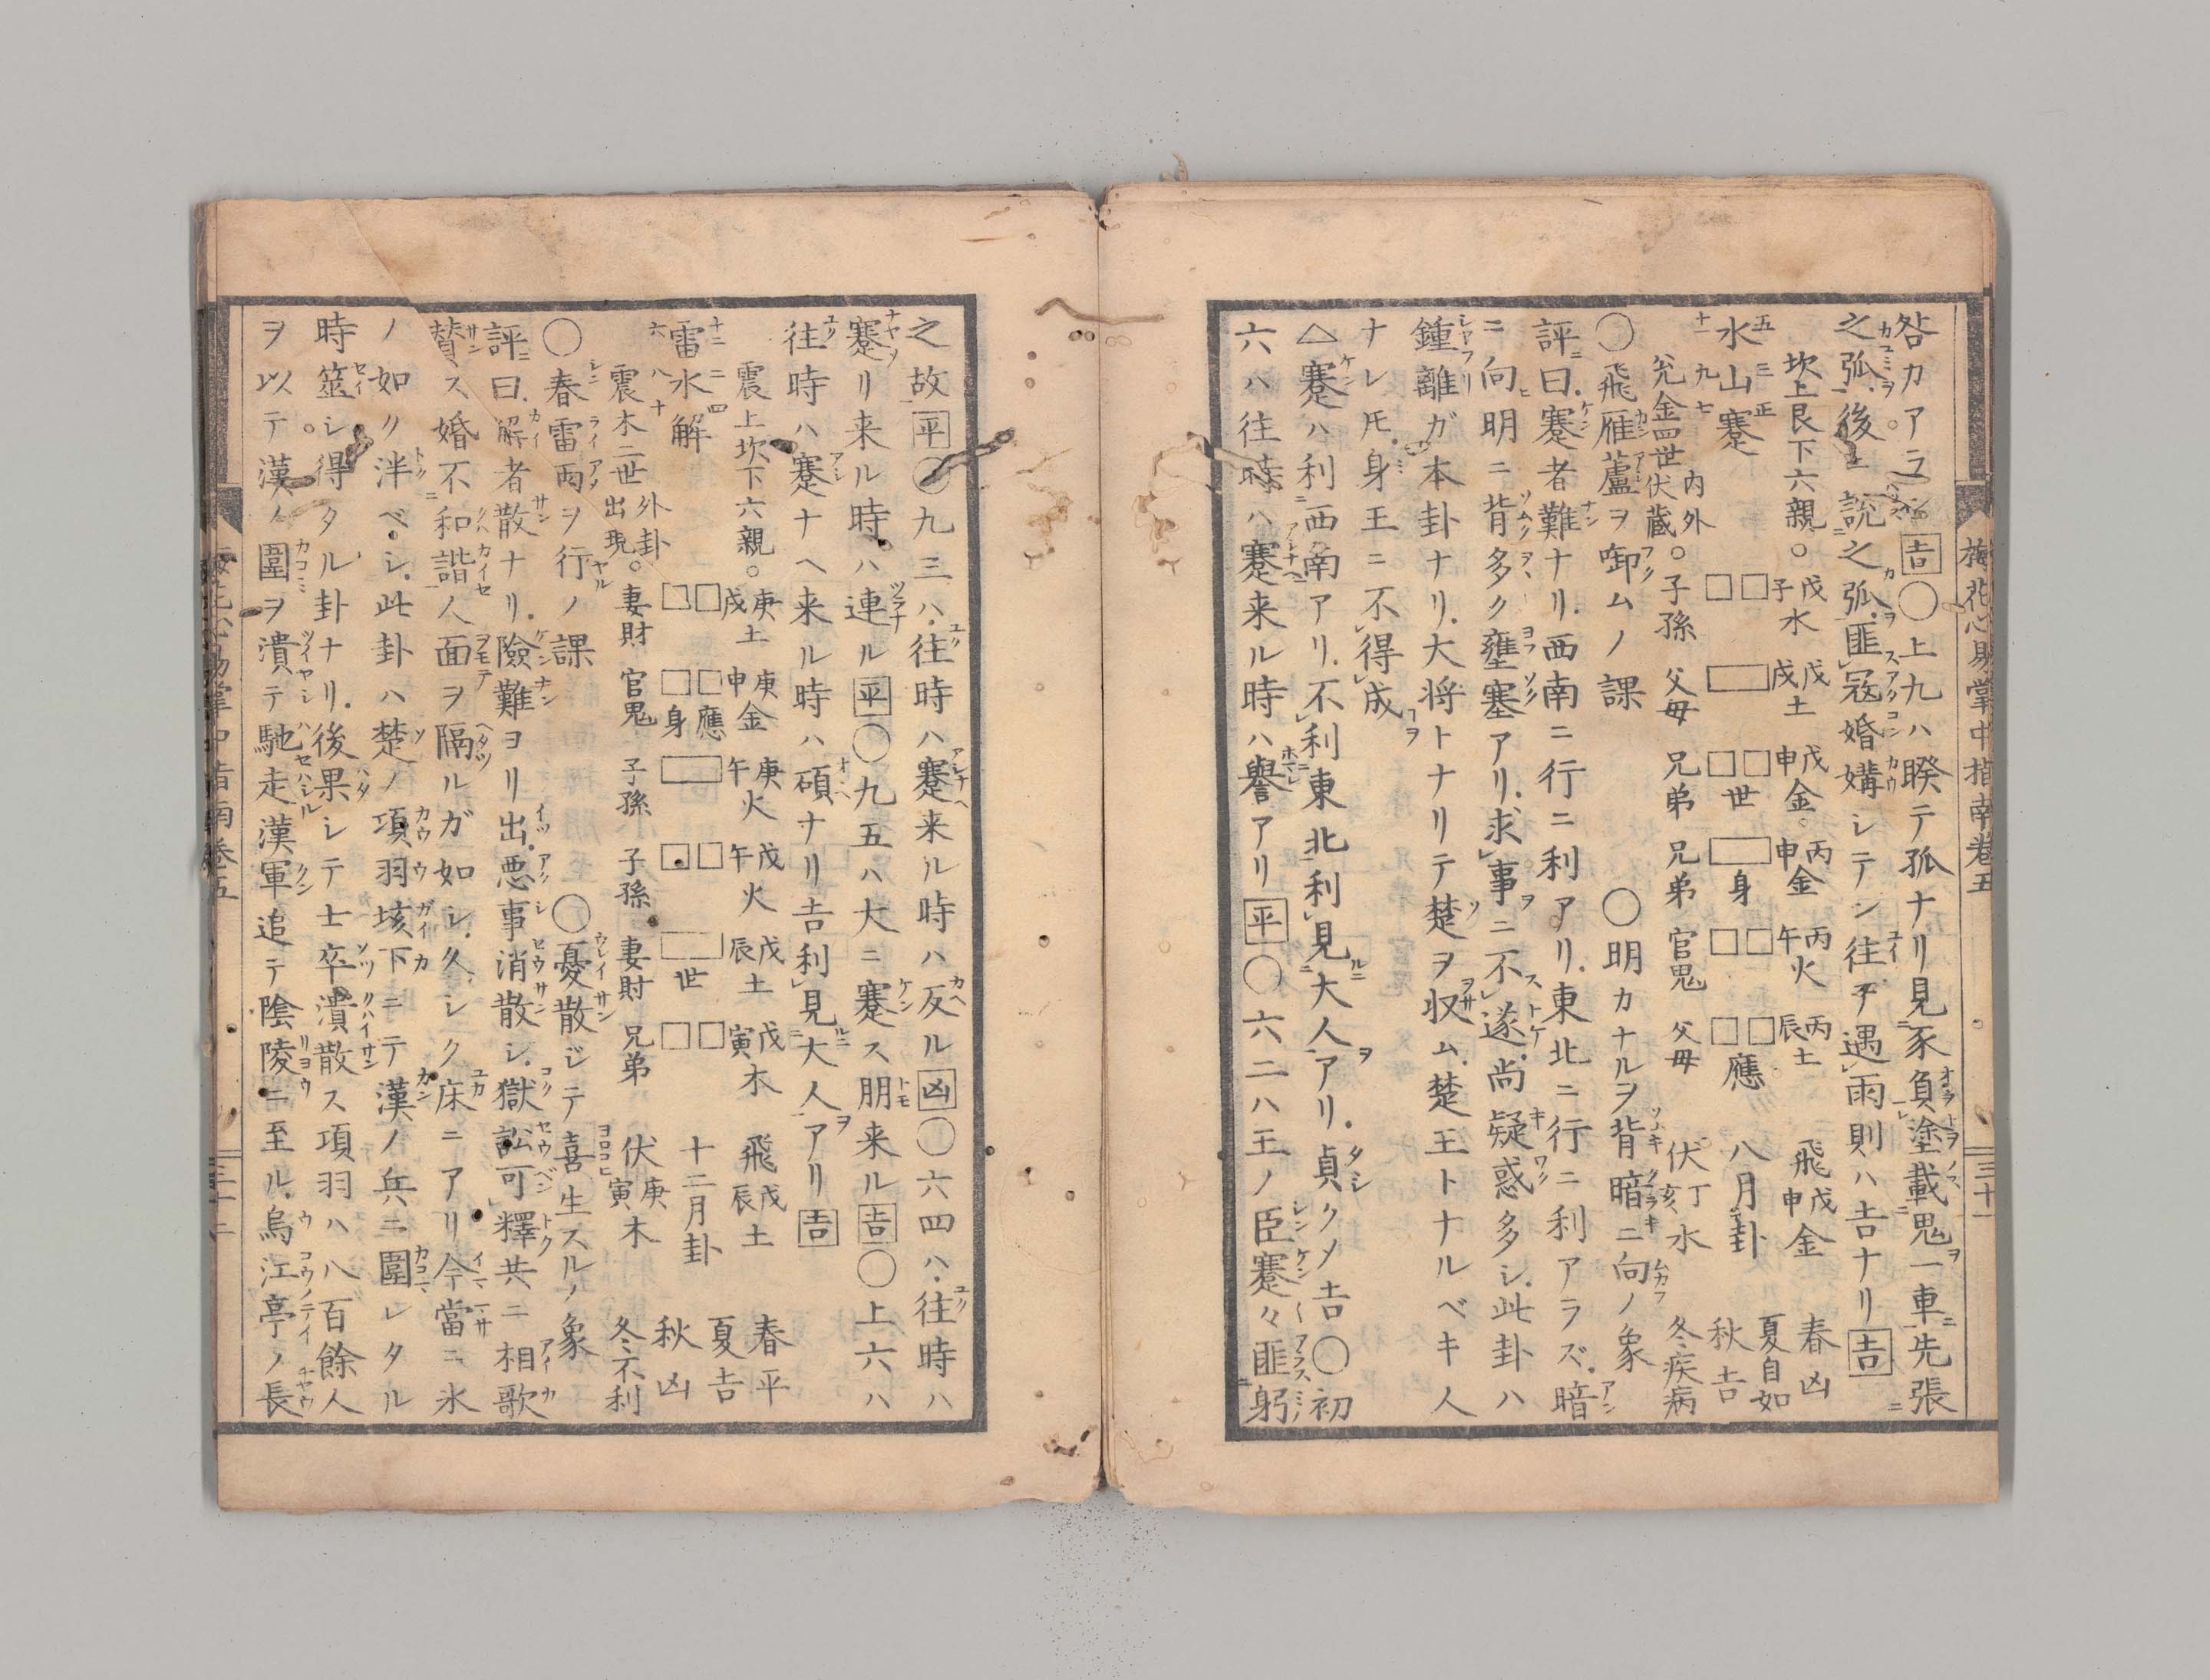 梅花心易掌中指南巻五
三十一
咎カアラン 吉 〇上九ハ睽テ孤ナリ見豕負塗載鬼一車先張
之弧後ニ説之弧匪冦婚媾シテン往テ遇雨則ハ吉ナリ 吉
坎上艮下六親。 戊子水 戊戌土 戊申金 丙申金 丙午火 丙辰土 飛戊申金 春凶
五三正
水山蹇 世 身 應 八月卦 夏自如 秋吉
十一九七
兊金四世 内外伏蔵。子孫 父母 兄弟 兄弟 官鬼 父母 伏丁亥水 冬疾病
〇飛雁蘆ヲ啣ムノ課 〇明カナルヲ背暗ニ向ノ象
評曰蹇者難ナリ西南ニ行ニ利アリ東北ニ行ニ利アラズ暗
ニ向明ニ背多ク壅塞アリ求事ニ不遂尚疑惑多シ此卦ハ
鍾離ガ本卦ナリ大将トナリテ楚ヲ収ム楚王トナルベキ人
ナレ𪜈身王ニ不得成
△蹇ハ利西南アリ不利東北利見大人アリ貞クメ吉〇初
六ハ往時ハ蹇来ル時ハ譽アリ 平 〇六二ハ王ノ臣蹇々匪躬
之故 平 〇九三ハ往時ハ蹇来ル時ハ反ル 凶 〇六四ハ往時ハ
蹇リ来ル時ハ連ル 平 〇九五ハ大ニ蹇ス朋来ル 吉 〇上六ハ
往時ハ蹇ナヘ来ル時ハ碩ナリ吉利見大人アリ 吉
震上坎下六親。 庚戌土 庚申金 庚午火 戊午火 戊辰土 戊寅木 飛戊辰土 春平
十二二四
雷水解 應 身 世 十二月卦 夏吉 秋凶
六八十
震木二世 外卦出現。妻財 官鬼 子孫 子孫 妻財 兄弟 伏庚寅木 冬不利
〇春雷雨ヲ行ノ課 〇憂散ジテ喜生スルノ象
評曰解者散ナリ險難ヨリ出悪事消散シ獄訟可釋共ニ相歌
賛ス婚不和諧人面ヲ隔ルガ如シ久シク床ニアリ今當ニ氷
ノ如ク泮ベシ此卦ハ楚ノ項羽垓下ニテ漢ノ兵ニ圍レタル
時筮シ得タル卦ナリ後果シテ士卒潰散ス項羽ハ八百餘人
ヲ以テ漢ノ圍ヲ潰テ馳走漢軍追テ陰陵ニ至ル烏江亭ノ長